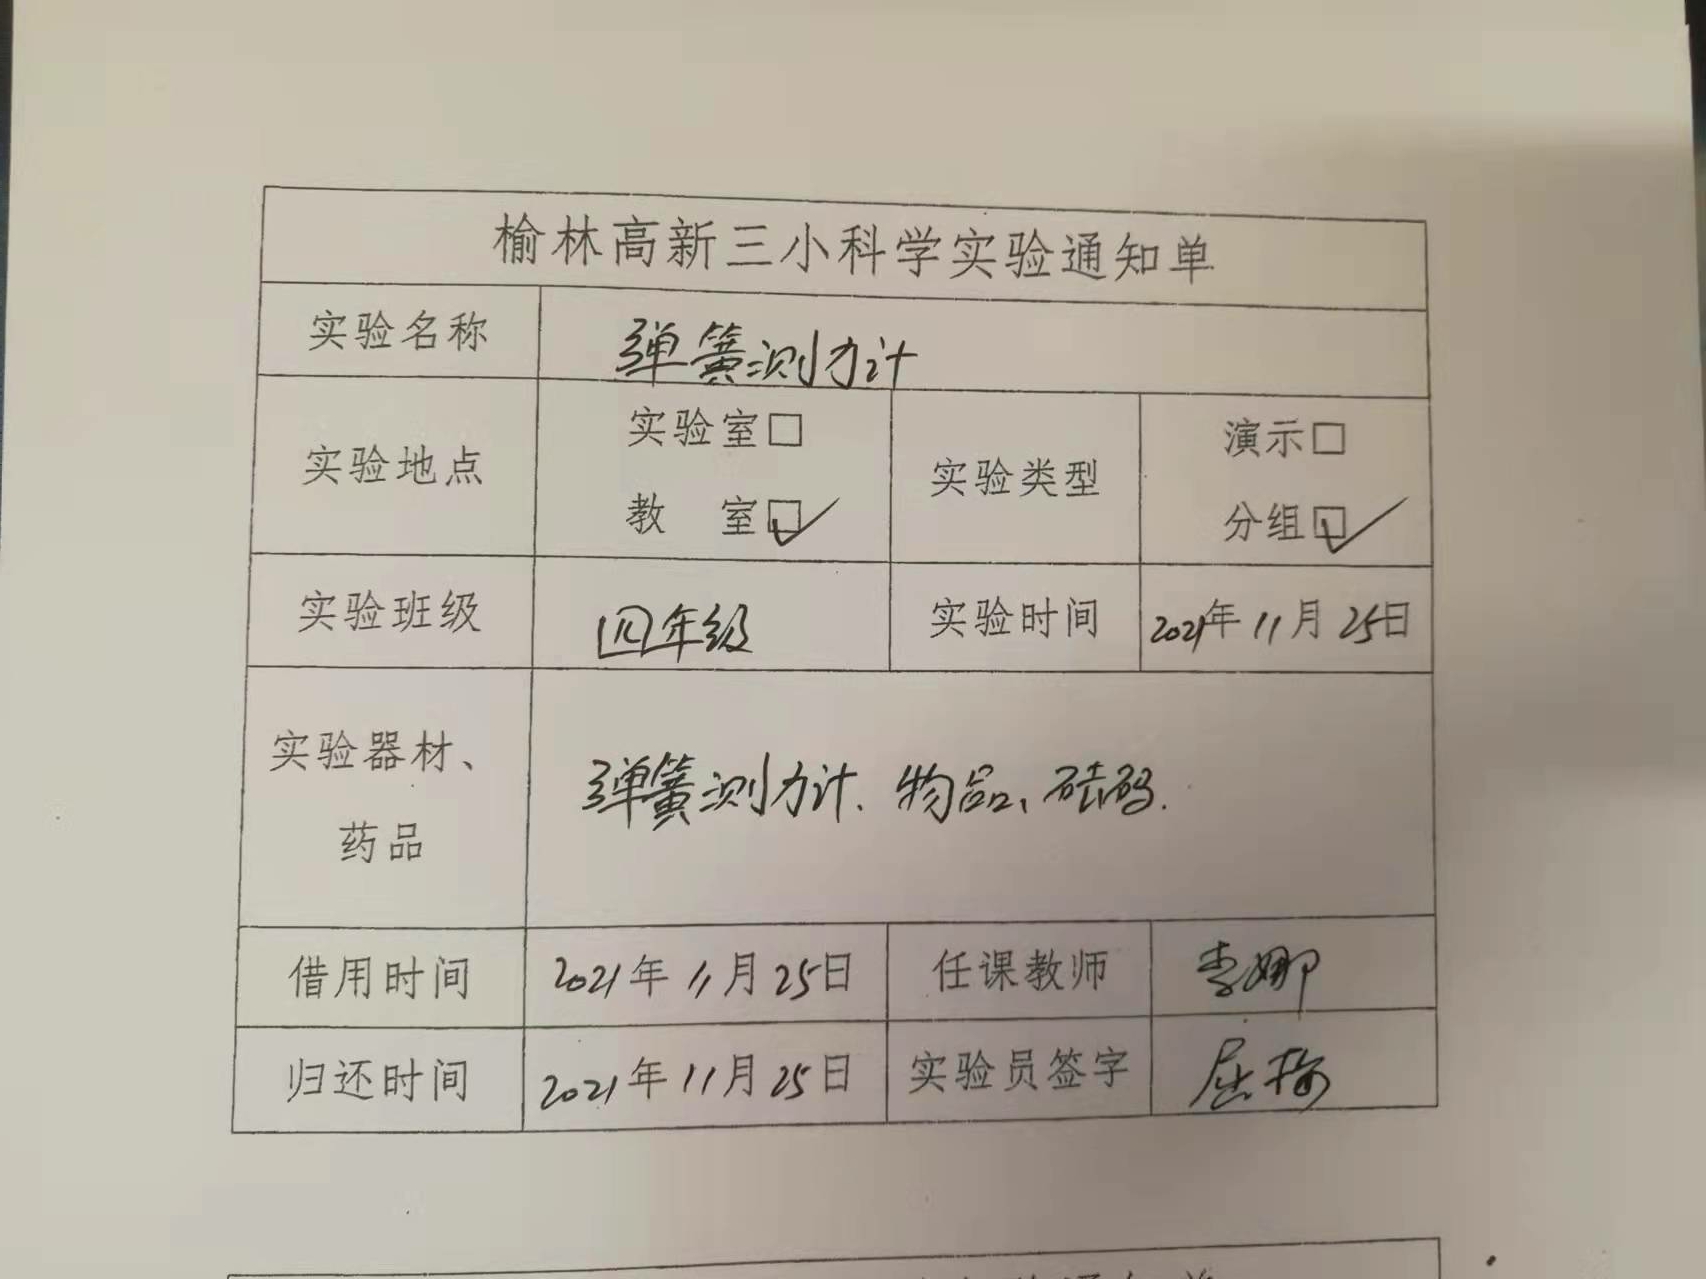 榆林高新三小科学实验通知单
实验名称 弹簧测力计
实验地点 实验室□ 教 室☑ 实验类型 演示□ 分组☑
实验班级 四年级 实验时间 2021年11月25日
实验器材、药品 弹簧测力计、物品、砝码.
借用时间 2021年11月25日 任课教师 李娜
归还时间 2021年11月25日 实验员签字 屈梅